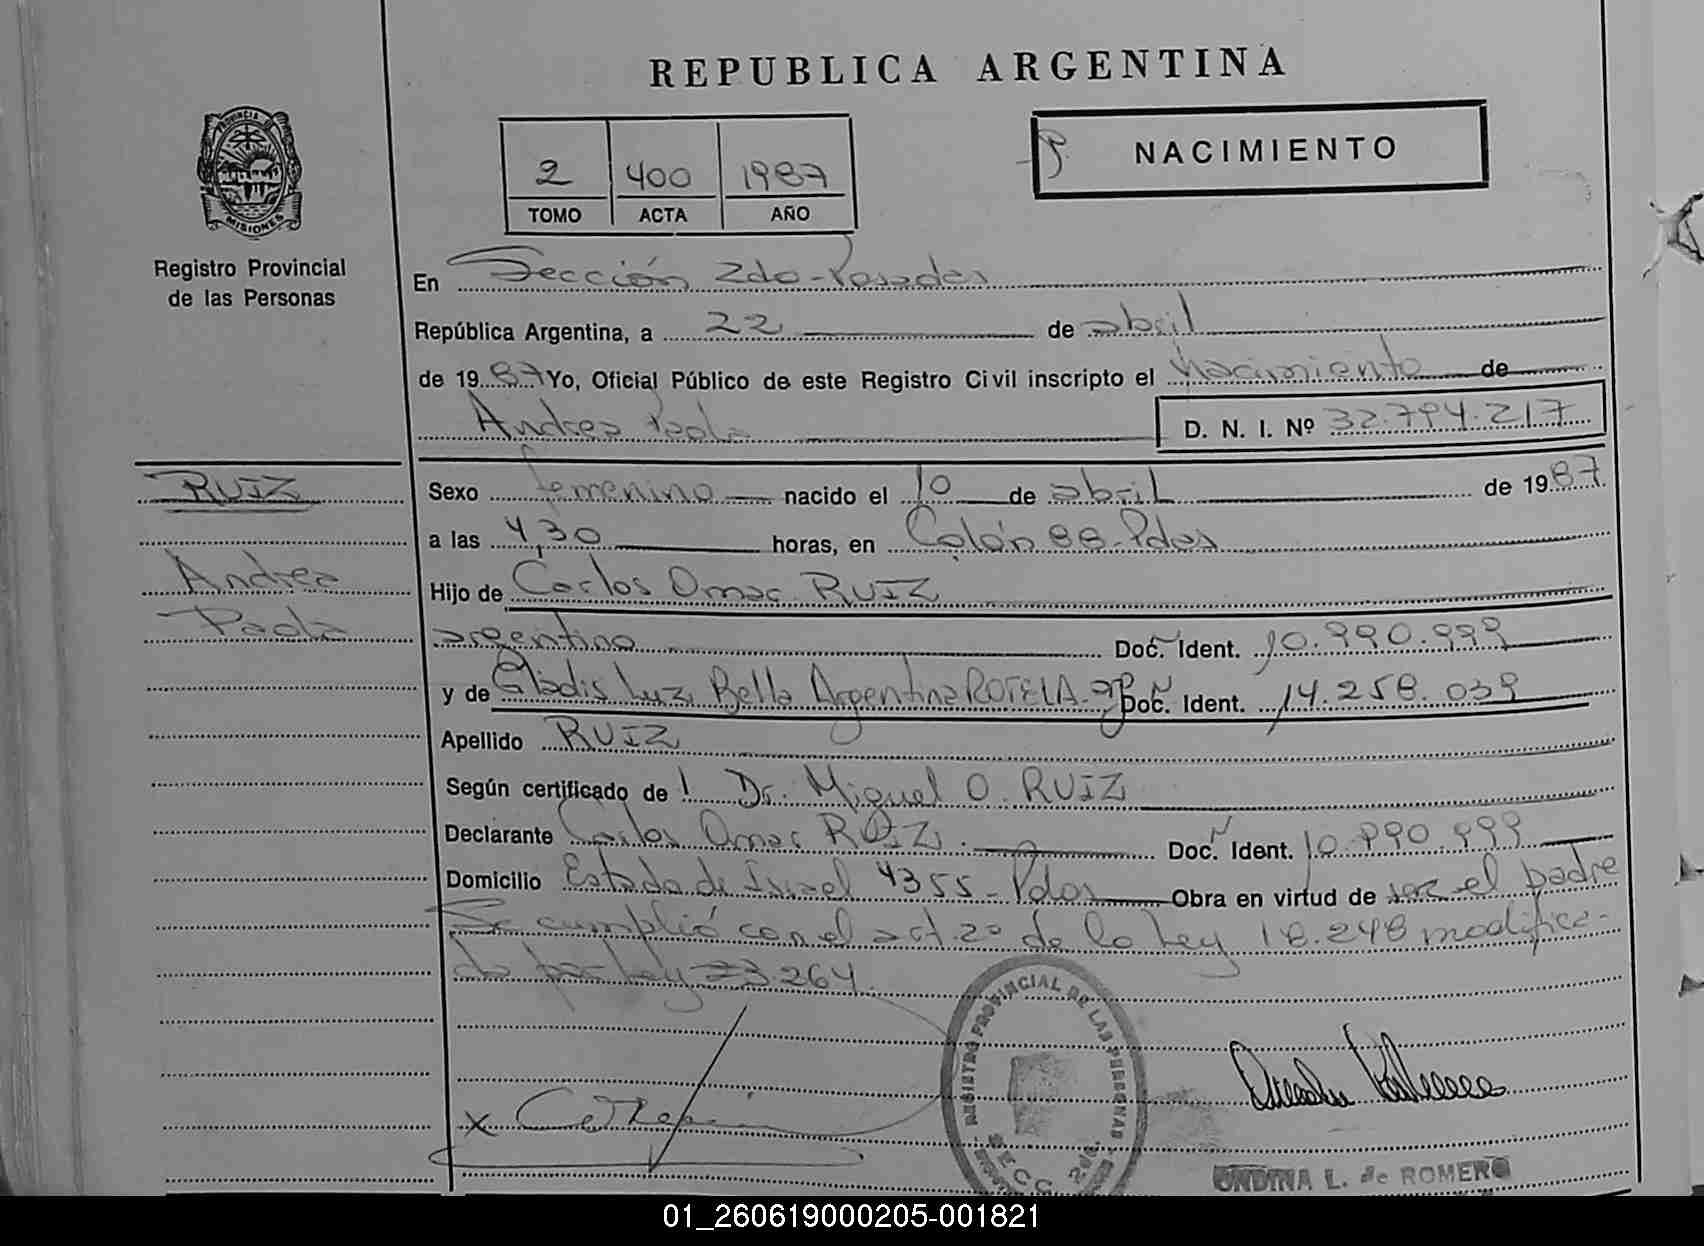 REPUBLICA ARGENTINA
PROVINCIA DE
MISIONES
Registro Provincial
de las Personas
2 400 1987
TOMO ACTA AÑO
NACIMIENTO
En Sección 2da-Posadas
República Argentina, a 22 de abril
de 1987 Yo, Oficial Público de este Registro Civil inscripto el Nacimiento de
Andrea Paola D. N. I. Nº 32.794.217
RUIZ
Andrea
Paola
Sexo femenino nacido el 10 de abril de 1987
a las 4,30 horas, en Colón 88-Pdas
Hijo de Carlos Omar RUIZ
argentino Doc. Ident. 10.990.999
y de Gladis Luz Bella Argentina ROTELA Doc. Ident. 14.258.039
Apellido RUIZ
Según certificado de l Dr. Miguel O. RUIZ
Declarante Carlos Omar RUIZ. Doc. Ident. 10.990.999
Domicilio Estado de Israel 4355-Pdas Obra en virtud de ser el padre
Se cumplió con el art. 2º de la Ley 18.248 modifica-
da por Ley 23.264.
x
REGISTRO PROVINCIAL DE LAS PERSONAS
SECC. 2da.
UNDINA L. de ROMERO
01_260619000205-001821